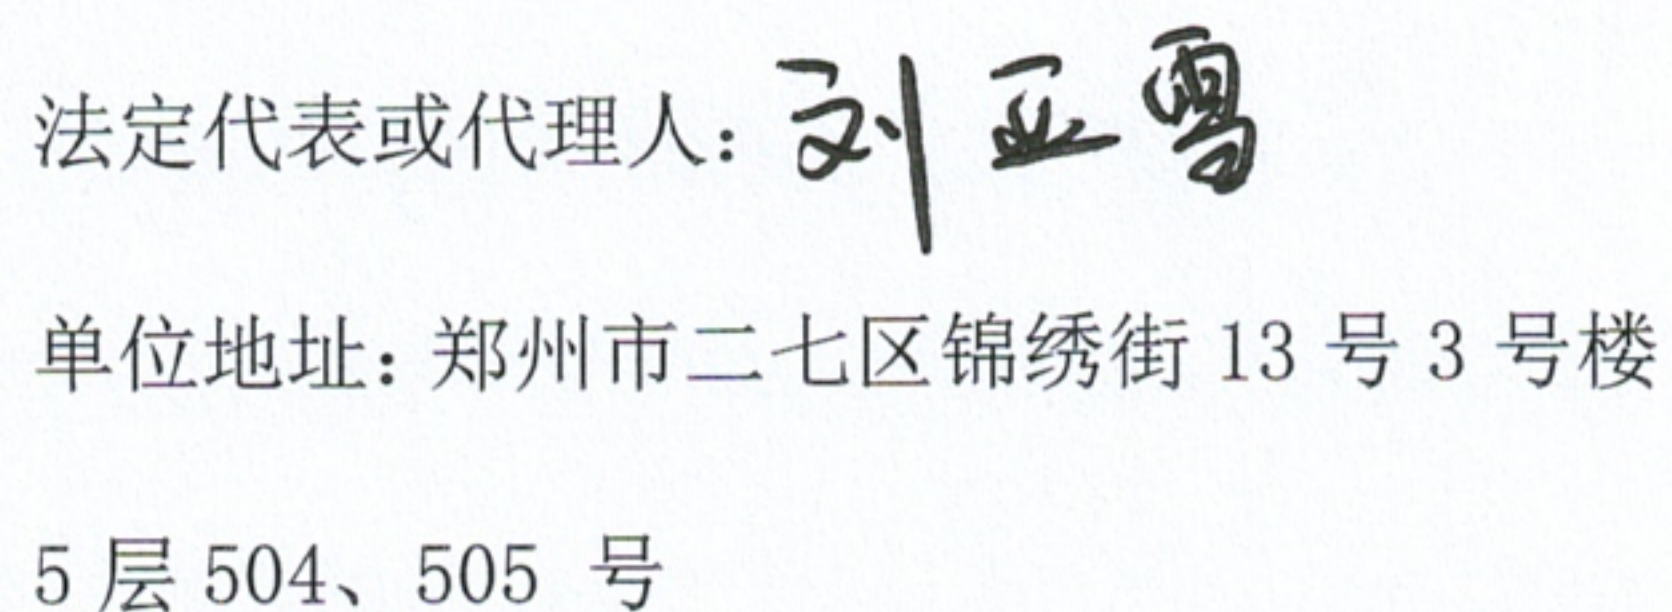 法定代表或代理人：刘亚雪
单位地址：郑州市二七区锦绣街 13 号 3 号楼
5 层 504、505 号